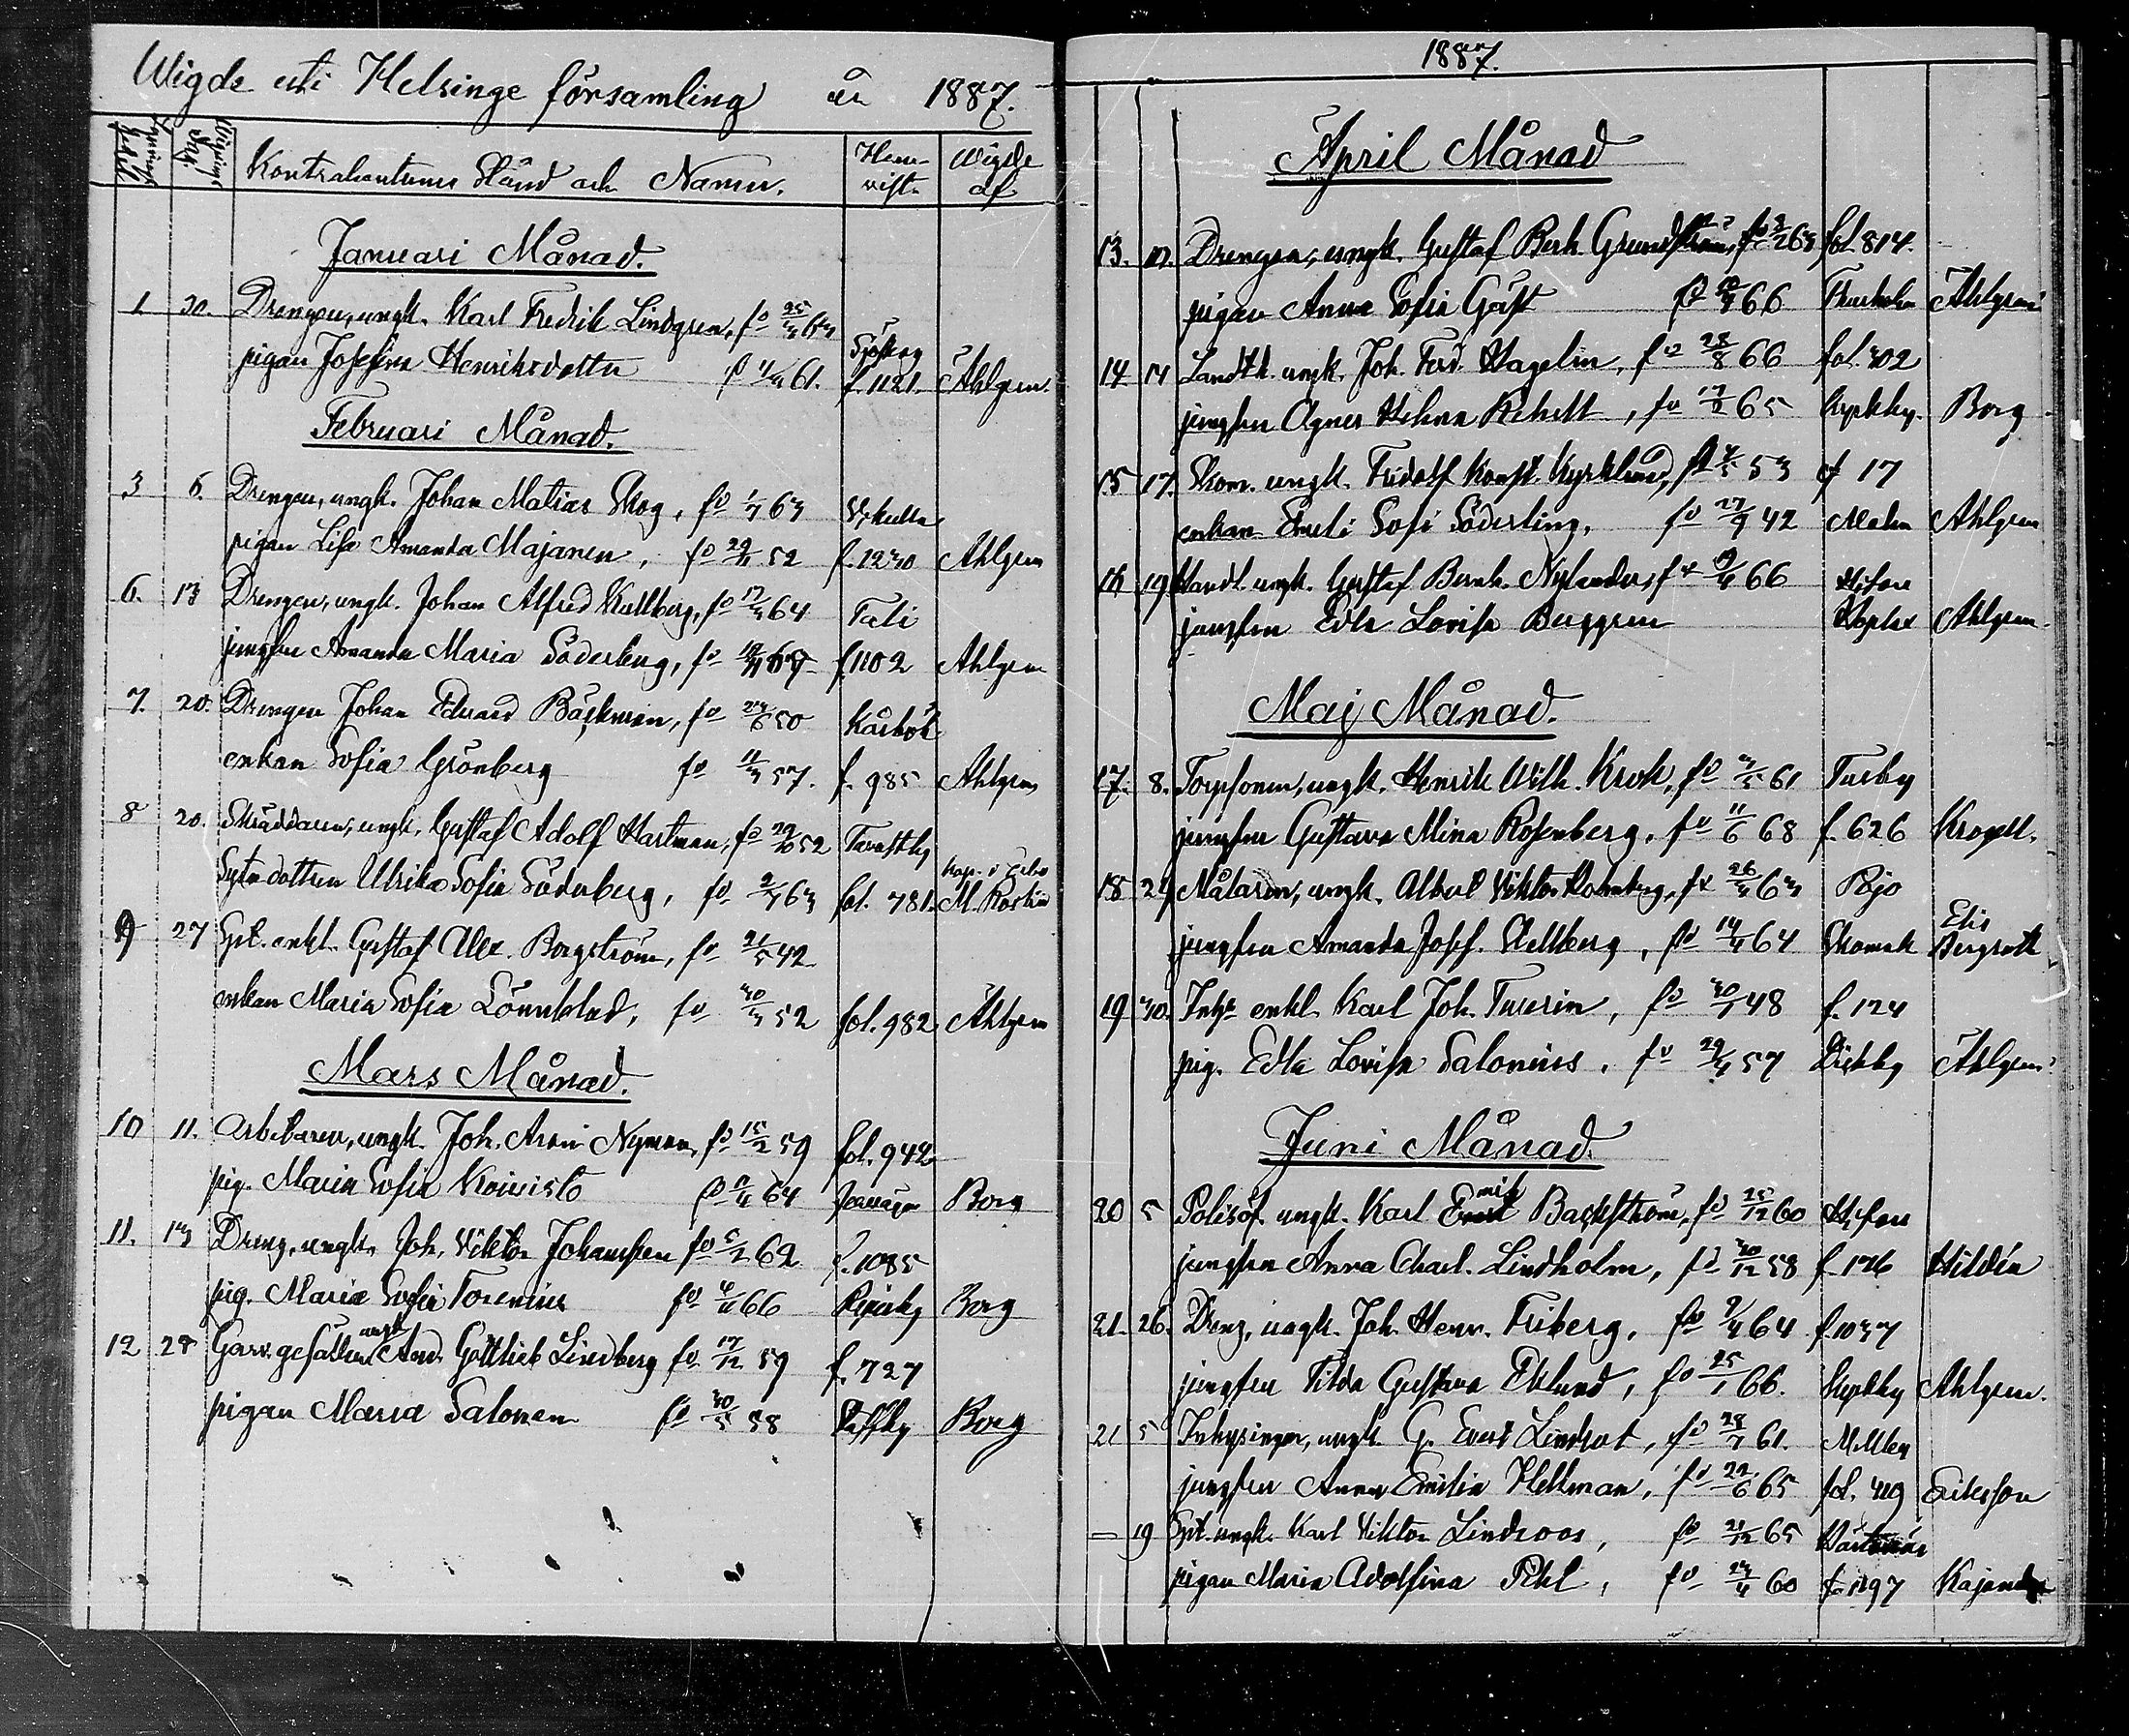 Wigde uti Helsinge församling år 1887.
Wignings dag.
Kontrahenternes Stånd och Namn.
Hem-
vist.
Wigde
af
Januari Månad.
1 30. Drengen, ungk. Karl Fredrik Lindgren, fö 25/3 63
pigan Josefina Henriksdotter f 61. f. 1121. Ahlgren.
Februari Månad.
3 6. Drengen, ungk. Johan Matias Skog, fö 1/7 63
pigan Lisa Amanda Majanen, fö 52 f. 1230 Ahlgren
6. 13 Drengen, ungk. Johan Alfred Kullberg, fö 64 Tali
jungfru Amanda Maria Söderberg, fö f. 1102 Ahlgren
7. 20. Drengen Johan Edvard Bäckman, fö 50 Kårböle
enkan Sofia Grönberg fö 11/3 57. f. 985 Ahlgren
8 20. Skräddaren, ungk. Gustaf Adolf Hartman, fö 29/10 52 Tavastby
Sytn dottren Ulrika Sofia Söderberg, fö 63 fol. 781.
9 27 Spt. enkl. Gustaf Alex. Borgström, fö 21/5 42
enkan Maria Sofia Lönnblad, fö 30/3 52 fol. 982 Ahlgren
Mars Månad.
10 11. Arbetaren, ungk. Joh. Nyman, fö 15/2 59 fol. 942
pig. Maria Sofia Koivisto 64 Borg
11. 13 Dreng, ungk. Joh. Viktor Johansson fö 62 f. 1085
pig. Maria Sofia Forenius fö 66 Borg
ungk
12 27 Garv.gesällen And. Gottlieb Lindberg fö 17/12 59 f. 727
pigan Maria Salonen fö 30/5 58 Borg
1887.
April Månad
13. 12. Drengen, ungk. Gustaf Bernh. Grundström, fol. 814.
pigan Anna Sofia Gäst 66 Ahlgren
14 14 Landtb. ungk. Joh. Ferd. Hagelin, fö 28/8 66 fol. 302
jungfru Agnes Helena Rehell, fö 65 Kyrkby. Borg
15 17. Skom. ungk. Fridolf Konst. Kyrklund, 53 f 17
enkan Emeli Sofi Söderling, fö 27/9 42 Malm Ahlgren
16 19 Handl. ungk. Gustaf Bernh. Nylander, 66
jungfrun Edla Lovisa Berggren Ahlgren
Maj Månad.
17. 8. Torpsonen, ungk. Henrik Wilh. Krok, fö 3/5 61
jungfru Gustava Mina Rosenberg, fö 11/6 68 f. 626 Krogell.
18 29 Målaren, ungk. Albert Viktor Holmberg, 26/3 63
jungfrun Amanda Josef. Stellberg, fö 14/4 64 Elis
Bergroth
19 30. Inhs enkl. Karl Joh. Turin, fö 48 f. 124
pig. Edla Lovisa Salonius. fö 57 Dickby Ahlgren
Juni Månad.
20 5 Polisöf. ungk. Karl Emil Backström, fö 25/12 60
jungfrun Anna Charl. Lindholm, fö 30/12 58 f. 126 Hildén
21. 26. Dreng, ungk. Joh. Henr. Friberg. fö 64 f. 1037
jungfru Tilda Gustava Eklund, fö 25/1 66. Kyrkby Ahlgren.
21 5 Inhysingen, ungk. G. Evert Lindrot, fö 28/7 61.
jungfrun Anna Emilia Hellman, fö 22/6 65 fol. 419 Eriksson
– 19 Spt. ungk. Karl Viktor Lindroos, fö 21/12 65
pigan Maria Adolfina Pihl, fö 60 f. 1197 Kajander